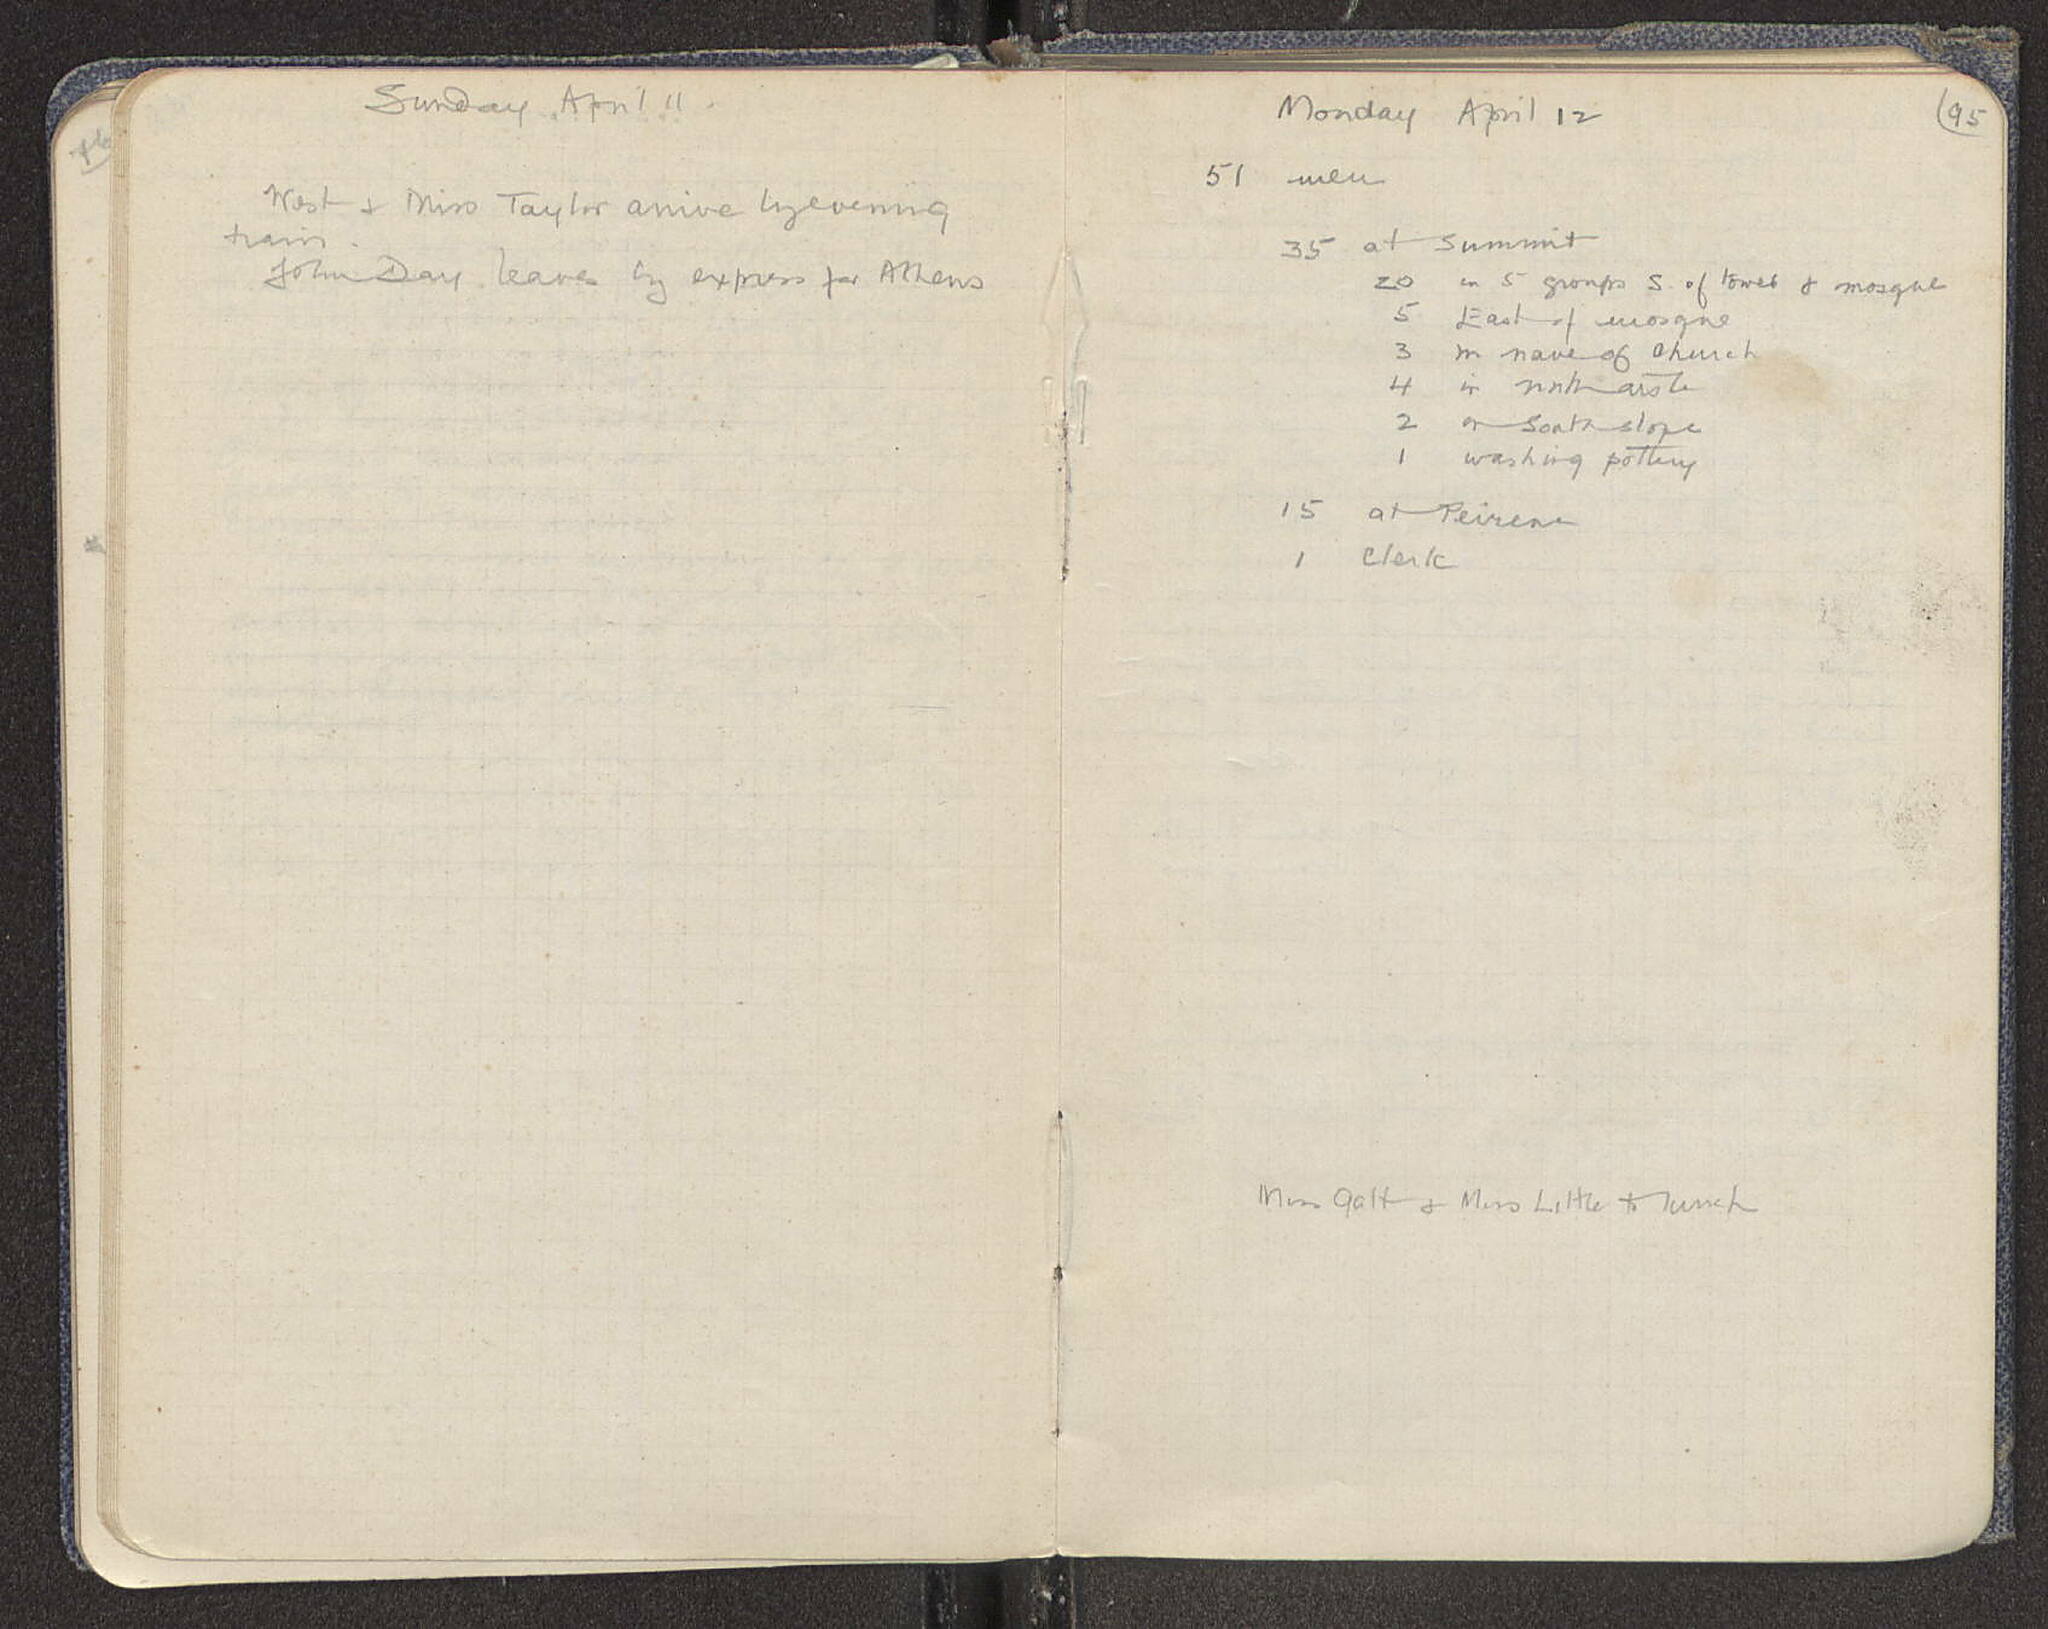 Sunday April 11.
West & Miss Taylor arrive by evening
train.
John Day leaves by express for Athens
Monday April 12
95
51 men
35 at Summit
20 in 5 groups S. of tower & mosque
5 East of mosque
3 in nave of church
4 in north aisle
2 on South slope
1 washing pottery
15 at Peirene
1 Clerk
Miss Galt & Miss Little to lunch